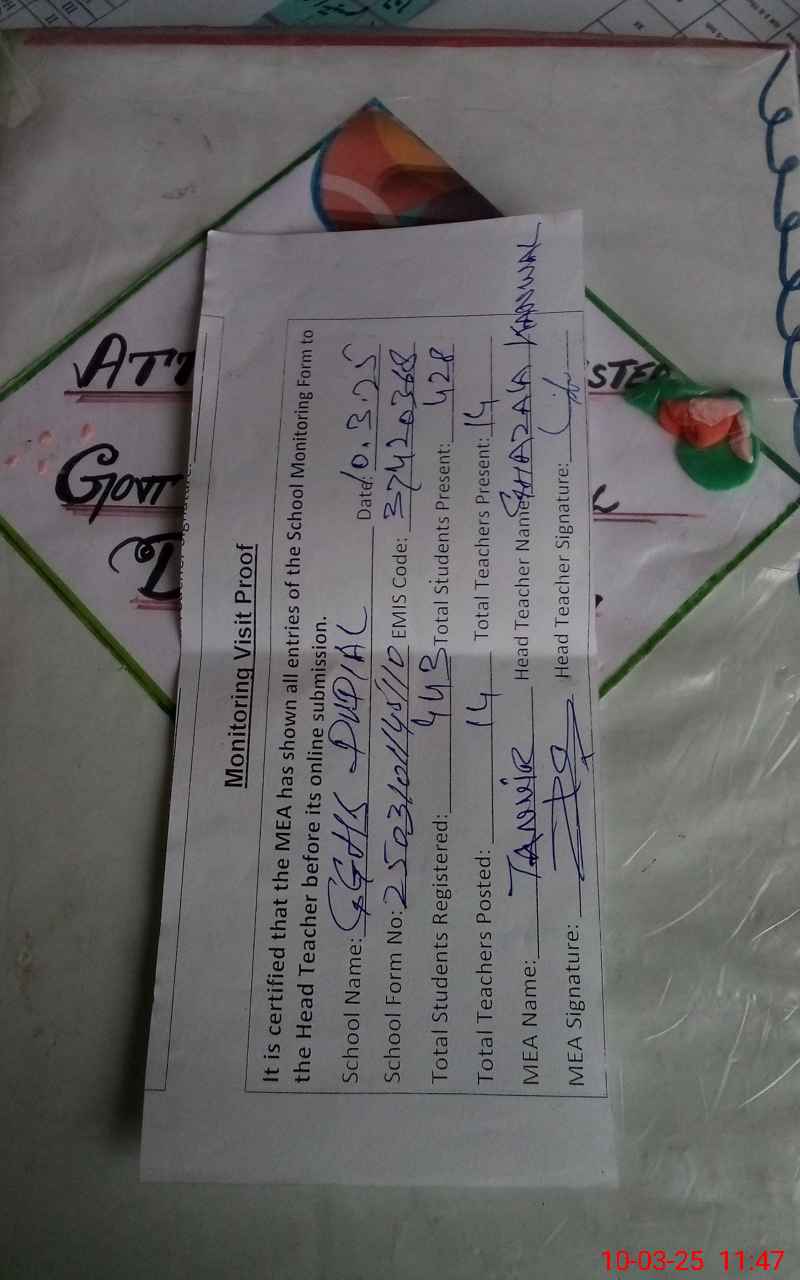 Monitoring Visit Proof
It is certified that the MEA has shown all entries of the School Monitoring Form to
the Head Teacher before its online submission.
School Name: GGHS DUPIAL Date: 10.3.25
School Form No: EMIS Code: 37420368
Total Students Registered: 443 Total Students Present: 428
Total Teachers Posted: 14 Total Teachers Present: 14
MEA Name: TANVIR Head Teacher Name: GHAZALA KANWAL
MEA Signature: Head Teacher Signature:
ATT
GOVT
10-03-25 11:47